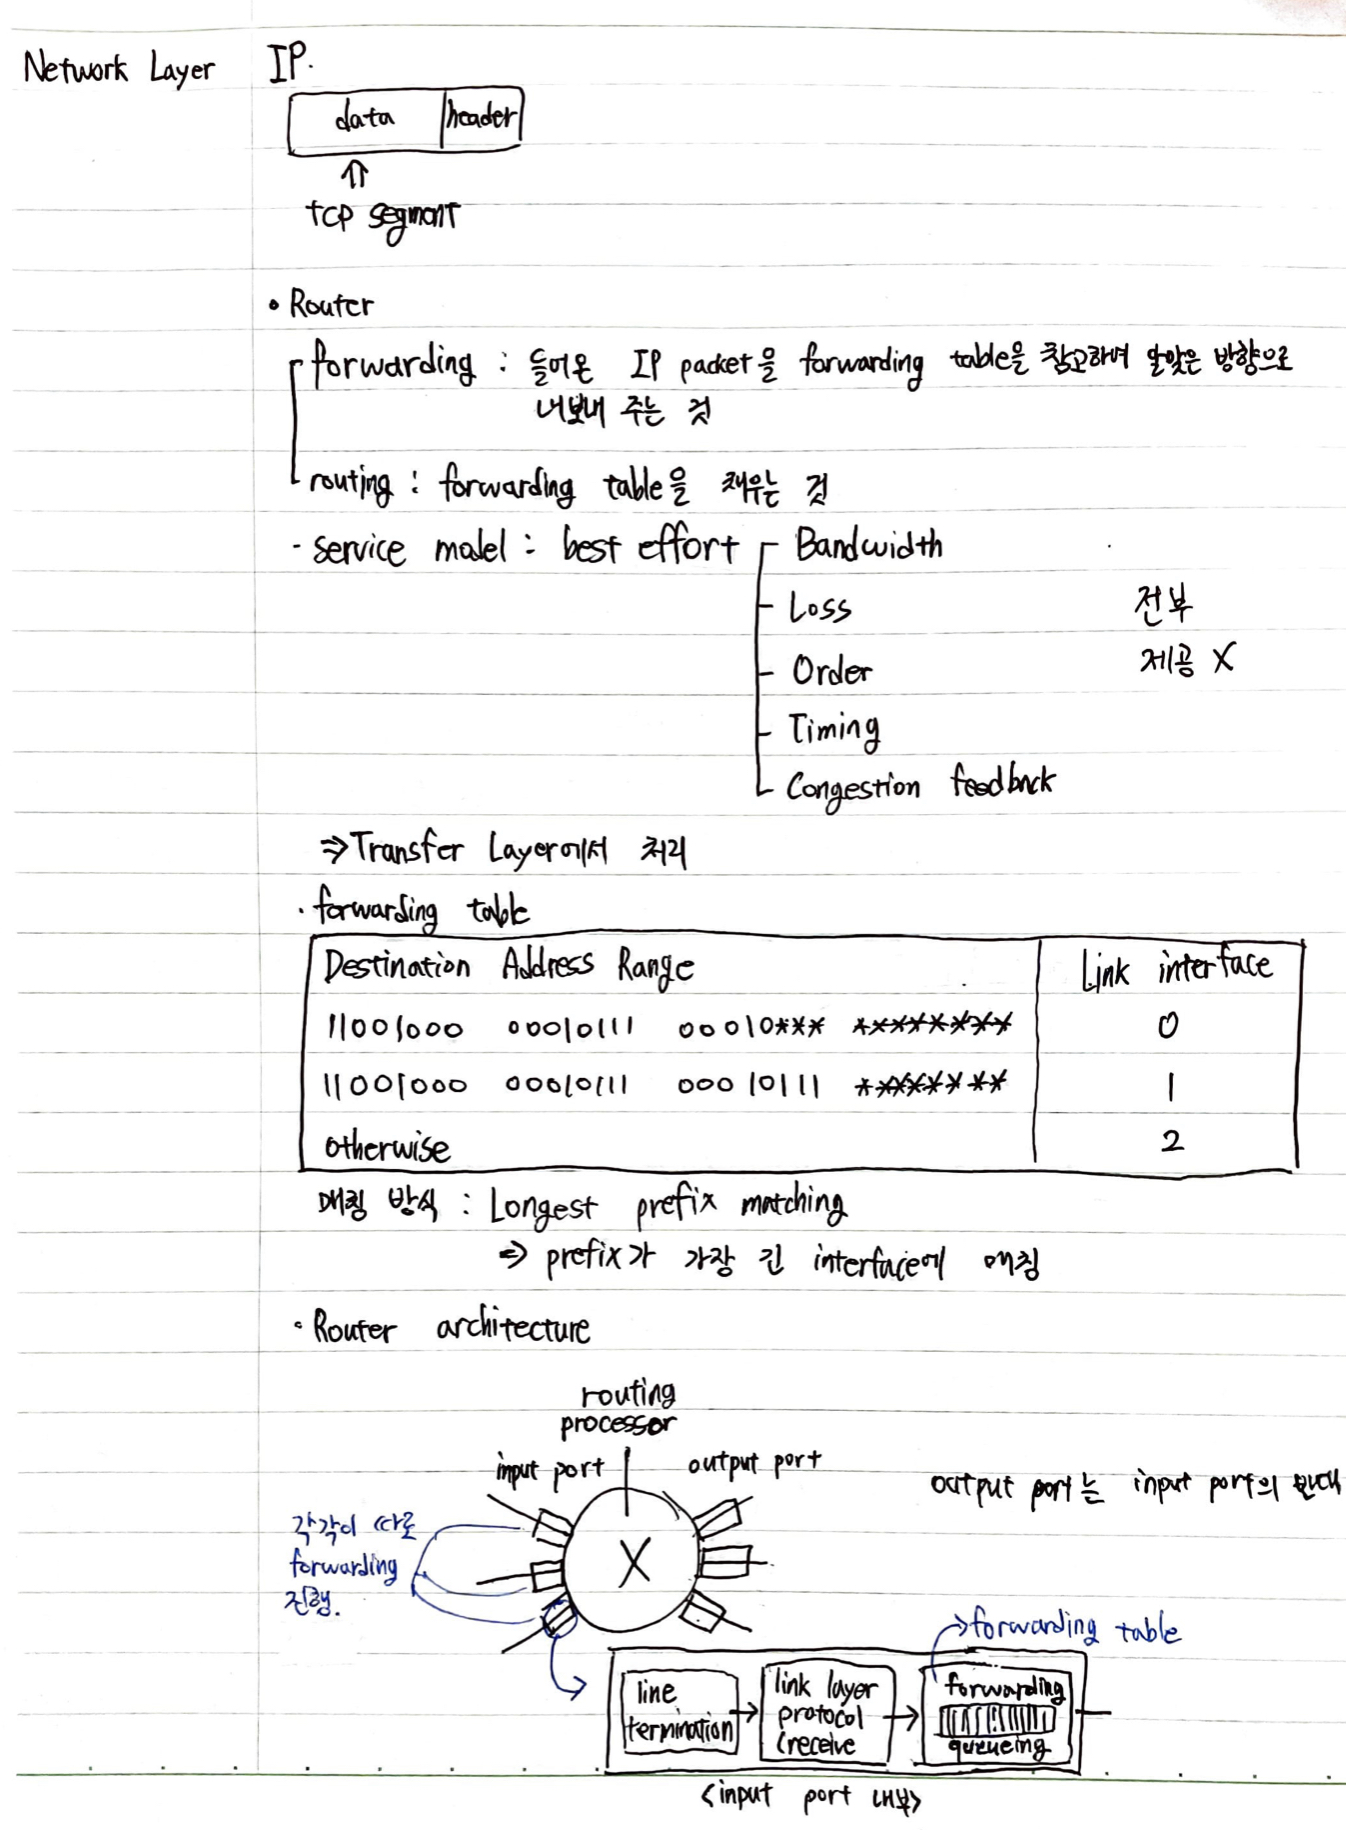 Network Layer IP.
data header
tcp segment
• Router
forwarding : 들어온 IP packet을 forwarding table을 참고하여 알맞은 방향으로
내보내 주는 것
routing : forwarding table을 채우는 것
- service model : best effort Bandwidth
Loss 전부
Order 제공 X
Timing
Congestion feedback
⇒ Transfer Layer에서 처리
· forwarding table
Destination Address Range Link interface
11001000 00010111 00010*** ******** 0
11001000 00010111 00010111 ******** 1
otherwise 2
매칭 방식 : Longest prefix matching
⇒ prefix가 가장 긴 interface에 매칭
· Router architecture
routing
processor
input port output port
output port는 input port의 반대
각각이 따로
forwarding
진행.
X
→ forwarding table
line
termination
link layer
protocol
(receive
forwarding
queueing
<input port 내부>